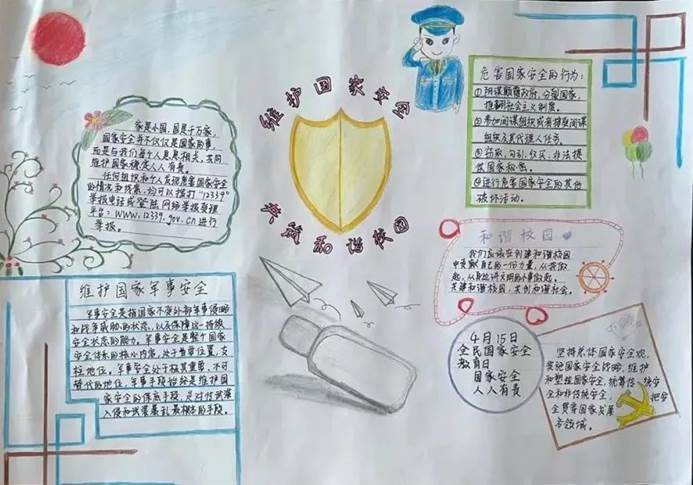 维护国家安全
共筑和谐校园
家是小国,国是千万家,
国家安全并不仅仅是国家的事,
而是与我们每个人息息相关,共同
维护国家稳定人人有责。
任何组织和个人发现危害国家安全
的情况和线索,均可以拨打"12339"
举报电话或登陆网络举报受理
平台:www.12339.gov.cn进行
举报。
维护国家军事安全
军事安全是指国家不受外部军事侵略
和战争威胁的状态,以及保障这一持续
安全状态的能力。军事安全是整个国家
安全体系的核心内容,处于首要位置,支
柱地位。军事安全处于极其重要、不可
替代的地位,军事手段始终是维护国
家安全的保底手段,是对付武装
入侵和武装暴乱最根本的手段。
危害国家安全的行为:
①阴谋颠覆政府,分裂国家,
推翻社会主义制度。
②参加间谍组织或者接受间谍
组织及其代理人任务。
③窃取,勾引,收买,非法提
供国家秘密。
④进行危害国家安全的其他
破坏活动。
和谐校园
我们应该在创建和谐校园
中贡献自己的一份力量,从我做
起,从身边讲文明的小事做起。
共建和谐校园,共创和谐社会。
4月15日
全民国家安全
教育日
国家安全
人人有责
坚持总体国家安全观,
实施国家安全战略,维护
和塑造国家安全,统筹传统安
全和非传统安全,把安
全贯穿国家发展
各领域。